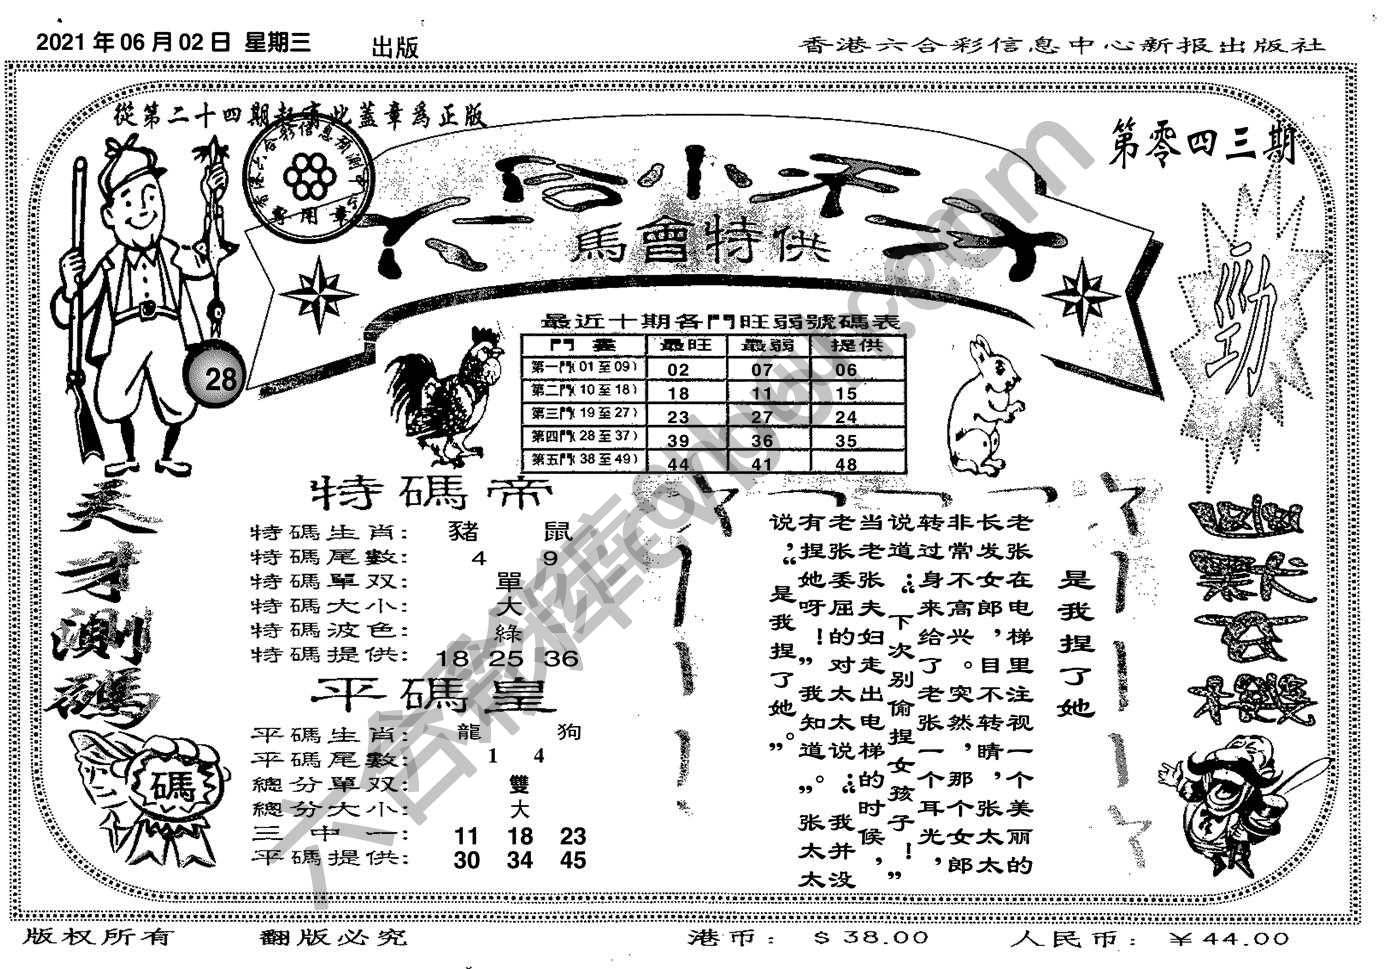 2021 年 06 月 02 日 星期三
出版
香港六合彩信息中心新报出版社
從第二十四期起窜此蓋章爲正版
第零四三期
馬會特供
勁
28
最近十期各門旺弱號碼表
門 最旺 最弱 提供
第一門(01 至 09) 02 07 06
第二門(10 至 18) 18 11 15
第三門(19 至 27) 23 27 24
第四門(28 至 37) 39 36 35
第五門(38 至 49) 44 41 48
天才測碼
碼
特碼帝
特碼生肖: 豬 鼠
特碼尾數: 4 9
特碼單双: 單
特碼大小: 大
特碼波色: 綠
特碼提供: 18 25 36
平碼皇
平碼生肖: 龍 狗
平碼尾數: 1 4
總分單双: 雙
總分大小: 大
三中一: 11 18 23
平碼提供: 30 34 45
是我捏了她
老张在电梯里注视一个美丽的
长发女郎，目不转睛，张太太
非常不高兴。突然，那个女郎
转过身来给了老张一个耳光，
说道：“下次别偷捏女孩子！”
当老张夫妇走出电梯的时候，
老张委屈的对太太说：“我并没
有捏她呀！”“我知道。”张太太
说，“是我捏了她。”
版权所有
翻版必究
港币： $38.00
人民币： ￥44.00